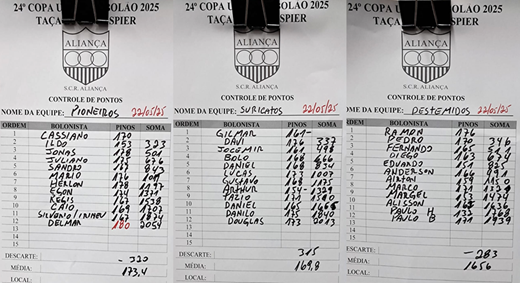 24º COPA U BOLAO 2025
TAÇA SPIER
ALIANÇA
S.C.R. ALIANÇA
CONTROLE DE PONTOS
NOME DA EQUIPE: PIONEIROS 22/05/25
ORDEM BOLONISTA PINOS SOMA
1 CASSIANO 170
2 ILDO 153 323
3 JONAS
4 JULIANO 676
5 SANDRO
6 MARIO 176
7 HERLON 178 1197
8 EGON
9 REGIS 167 1538
10 CAIO 169 1707
11 SILVONO/IRINEU 167 1874
12 DELMAR 180 2054
13
14
15
DESCARTE: - 320
MÉDIA: 173,4
LOCAL:
24º COPA U BOLAO 2025
TAÇA SPIER
ALIANÇA
S.C.R. ALIANÇA
CONTROLE DE PONTOS
NOME DA EQUIPE: SURICATOS 22/05/25
ORDEM BOLONISTA PINOS SOMA
1 GILMAR 161-
2 DAVI 176 337
3 JOCEMIR
4 BOLO
5 DANIEL 168
6 LUCAS 173 1007
7 GUSTAVO 168 1175
8 ARTHUR 154 1329
9 TAZIO 171 1500
10 DANIEL
11 DANILO 175 1840
12 DOUGLAS 173 2013
13
14
15
DESCARTE: 315
MÉDIA: 169,8
LOCAL:
24º COPA U BOLAO 2025
TAÇA SPIER
ALIANÇA
S.C.R. ALIANÇA
CONTROLE DE PONTOS
NOME DA EQUIPE: DESTEMIDOS 22/05/25
ORDEM BOLONISTA PINOS SOMA
1 RAMON 176
2 PEDRO 170 346
3 FERNANDO
4 DIEGO 163 674
5 EDUARDO
6 ANDERSON 166 991
7 AIRTON
8 MARCO
9 MARGEL 1474
10 ALISSON 1636
11 PAULO H 1768
12 PAULO B 171 1939
13
14
15
DESCARTE: - 283
MÉDIA: 1656
LOCAL: